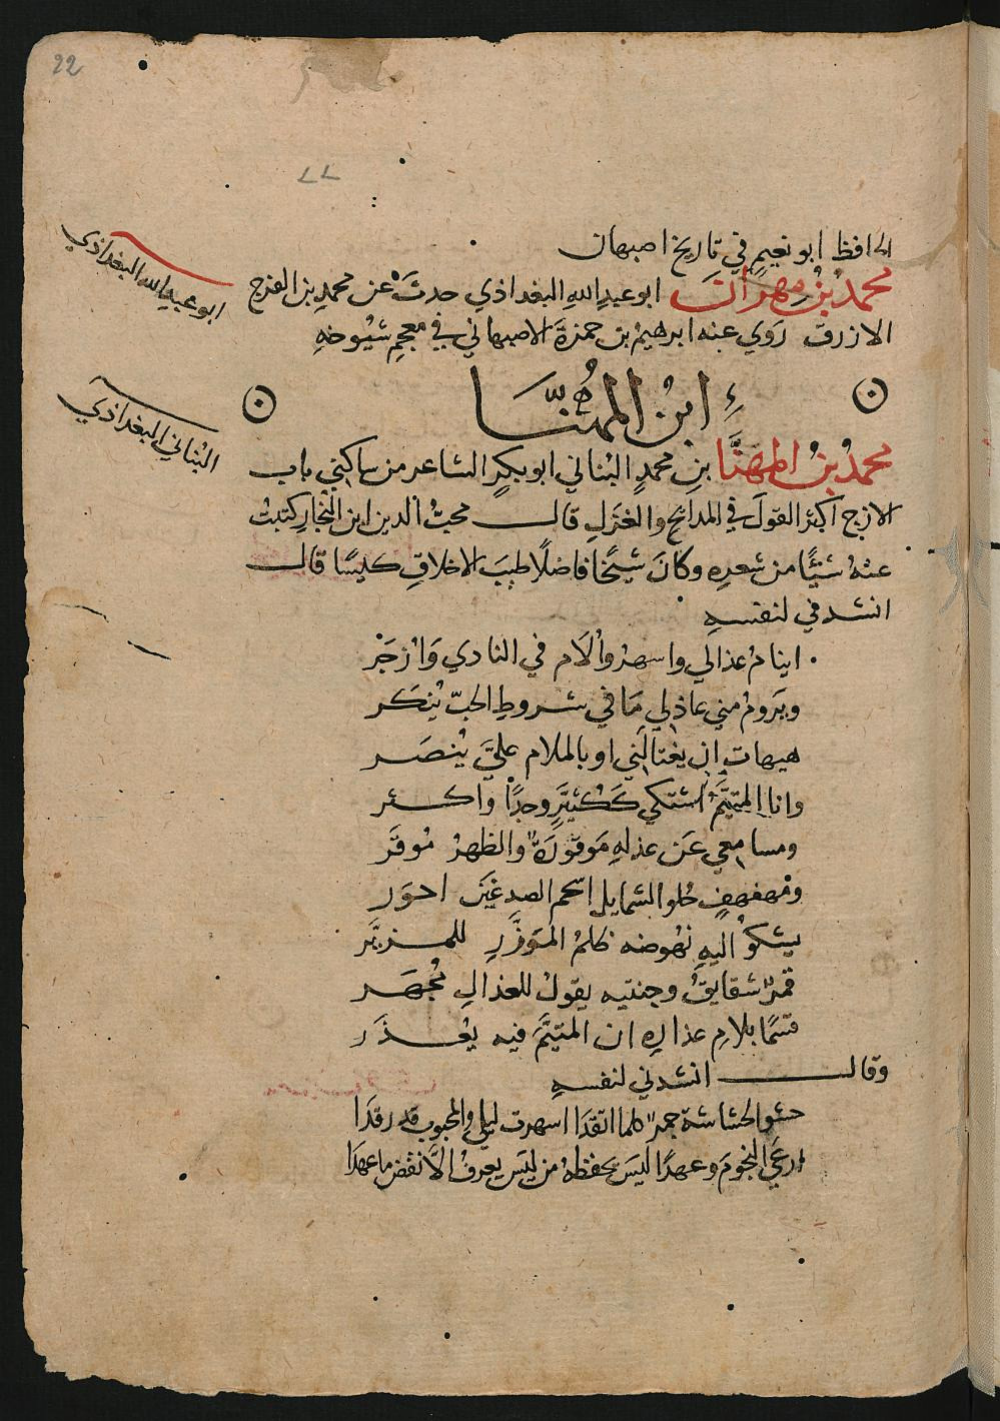 22
الحافظ ابو نعيمٍ في تاريخ اصبهان
محمدُ بنُ مهرانَ ابو عبدِ اللهِ البغداذي حدثَ عن محمدِ بن الفرج
ابو عبدِ الله البغداذي
الازرق رَوي عنه ابرهيمُ بن حمزةَ الاصبهاني في معجمِ شيُوخهِ
ابنُ المُهنَّا
محمدُ بنُ المهنَّا بنِ محمدٍ البُناني ابو بكرٍ الشاعر من ساكني باب
البُناني البغداذي
الازج اكثر القولَ في المدائحِ والغزلِ قال محبُّ الدين ابن النجار كتبتُ
عنهُ شيئًا من شعرِه وكانَ شيخًا فاضلًا طيبَ الاخلاقِ كيسًا قال
انشدني لنفسهِ
اينامُ عذالي واسهرُ وأُلَام في النادي وَازْجَرْ
ويَرومُ مني عاذلي مَا في شروطِ الحبّ يُنكَر
هيهات ان يغتالني او بالملام عليَّ يُنصَر
وانا المتيَّمُ اشتكي كَكُثيّرٍ وجدًا واكثر
ومسامعي عَن عذلهِ مَوقورَةٌ والظهرُ مُوقَر
ومُهفهفٍ حُلو الشمايل اسحم الصدغين احوَر
يشكو اليهِ نهُوضه ظلمُ المؤزَّرِ للمزنَّر
قمرٌ شقايقُ وجنتيه يقولُ للعذالِ مُجهَر
قسمًا بلامِ عذارِه ان المتيَّمَ فيه يُعذَر
وقال انشدني لنفسهِ
حشو الحشاشة جمرٌ كلما اتقدَا اسهرت ليلي والمحبوب قد رقدَا
ارعَي النجومَ وعهدًا ليسَ يحفظهُ من ليسَ يعرفُ الّا نقضَ ما عهدَا